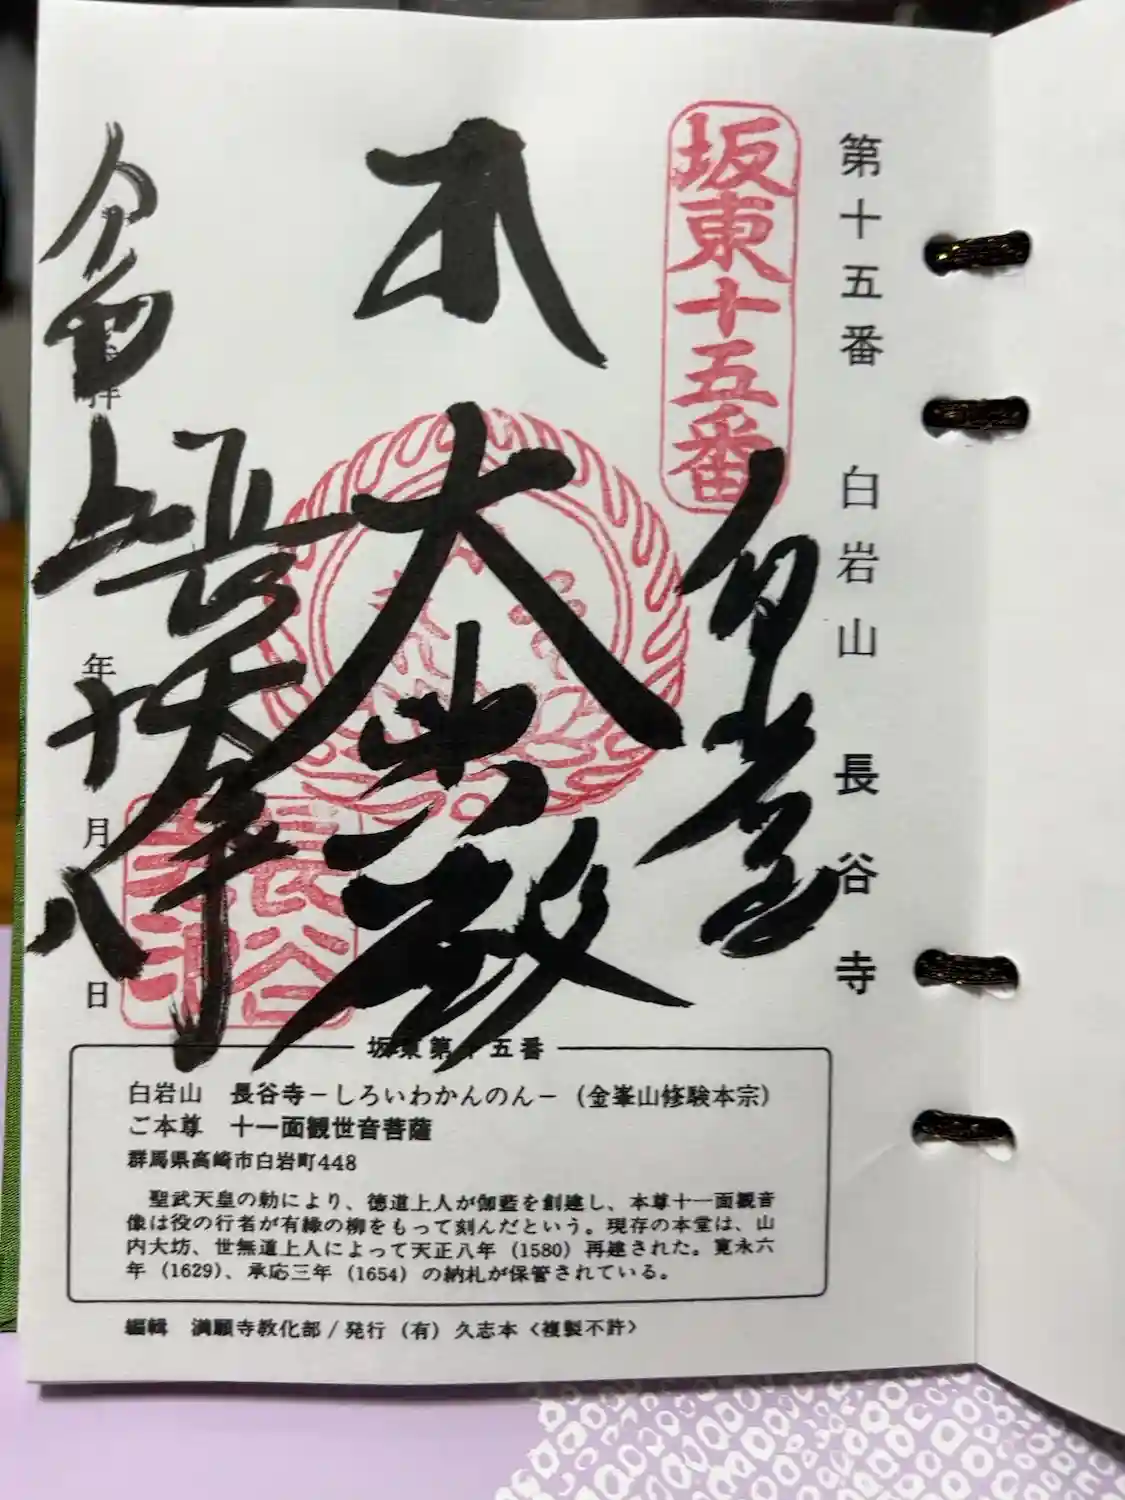 第十五番 白岩山 長谷寺
坂東十五番
奉拝
大悲殿
長谷寺
令和
年
十
月
八
日
坂東第十五番
白岩山 長谷寺－しろいわかんのん－（金峯山修験本宗）
ご本尊 十一面観世音菩薩
群馬県高崎市白岩町448
聖武天皇の勅により、徳道上人が伽藍を創建し、本尊十一面観音
像は役の行者が有縁の柳をもって刻んだという。現存の本堂は、山
内大坊、世無道上人によって天正八年（1580）再建された。寛永六
年（1629）、承応三年（1654）の納札が保管されている。
編輯 満願寺教化部/発行（有）久志本〈複製不許〉